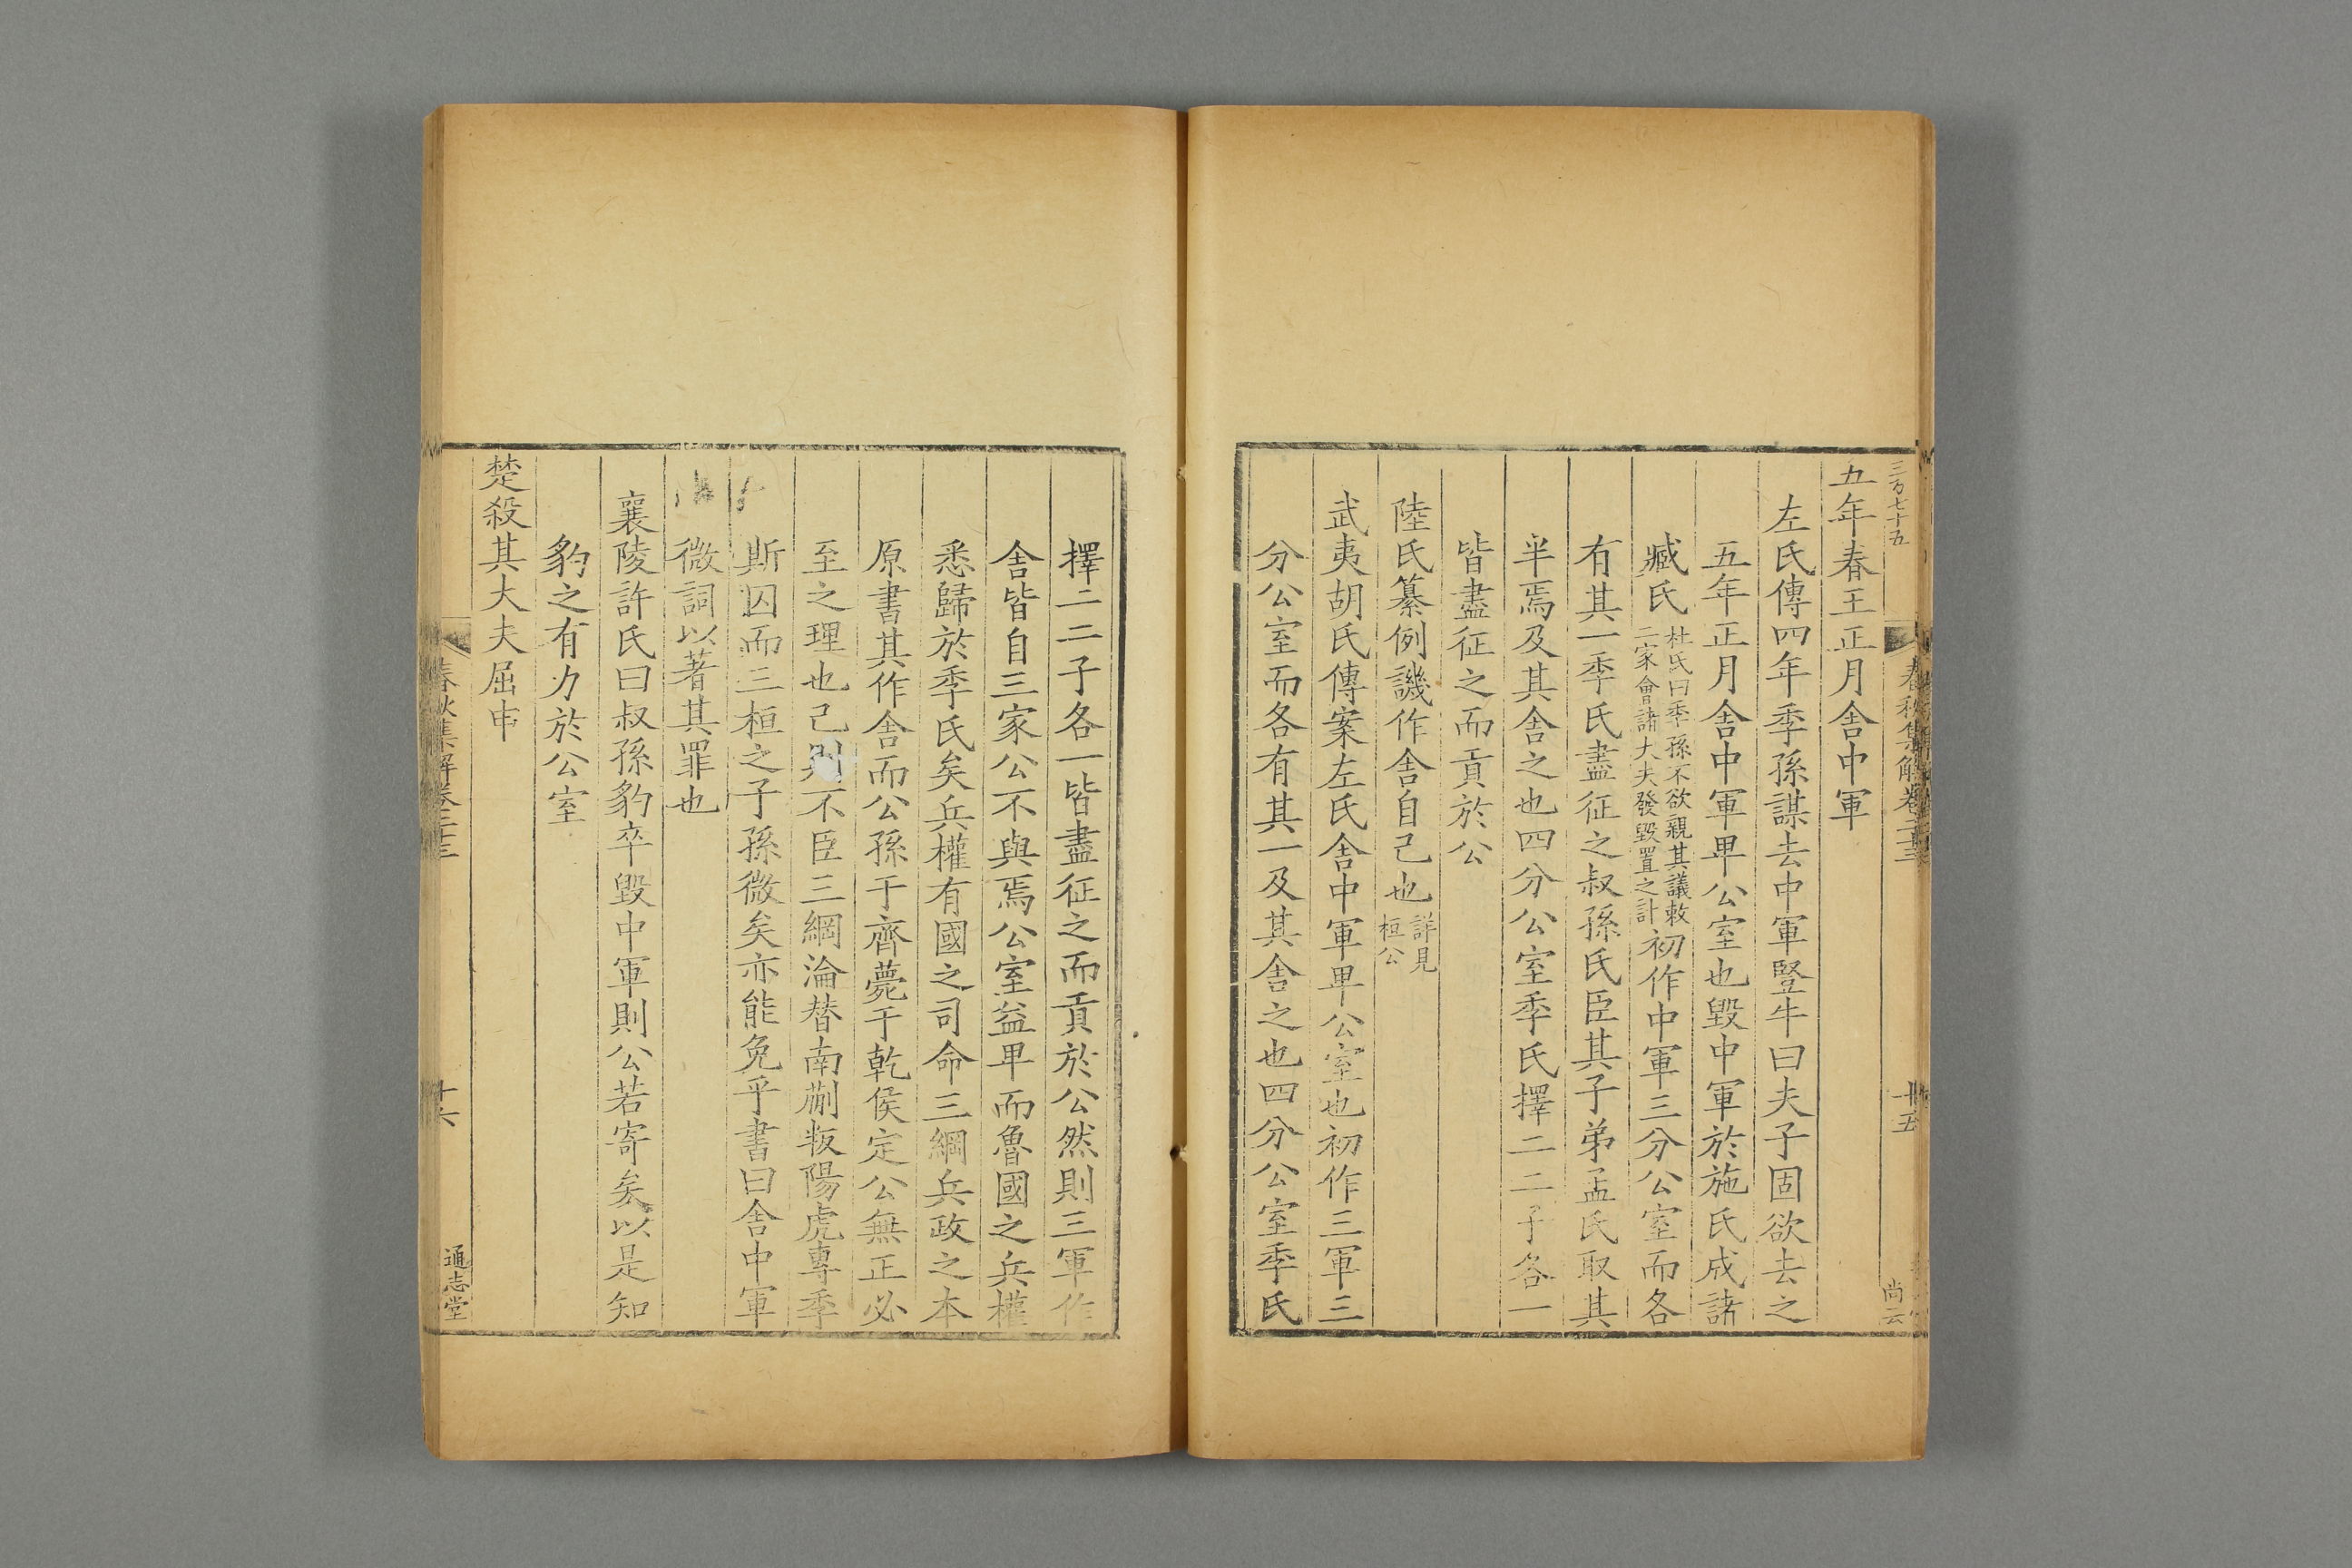 三百七十五
春秋集解卷二十三
十五
尚云
五年春王正月舍中軍
左氏傳四年季孫謀去中軍豎牛曰夫子固欲去之
五年正月舍中軍卑公室也毀中軍於施氏成諸
臧氏
杜氏曰季孫不欲親其議敕
二家會諸大夫發毀置之計
初作中軍三分公室而各
有其一季氏盡征之叔孫氏臣其子弟孟氏取其
半焉及其舍之也四分公室季氏擇二二子各一
皆盡征之而貢於公
陸氏纂例譏作舍自己也
詳見
桓公
武夷胡氏傳案左氏舍中軍卑公室也初作三軍三
分公室而各有其一及其舍之也四分公室季氏
擇二二子各一皆盡征之而貢於公然則三軍作
舍皆自三家公不與焉公室益卑而魯國之兵權
悉歸於季氏矣兵權有國之司命三綱兵政之本
原書其作舍而公孫于齊薨于乾侯定公無正必
至之理也己則不臣三綱淪替南蒯叛陽虎專季
斯囚而三桓之子孫微矣亦能免乎書曰舍中軍
微詞以著其罪也
襄陵許氏曰叔孫豹卒毀中軍則公若寄矣以是知
豹之有力於公室
楚殺其大夫屈申
春秋集解卷二十三
十六
通志堂